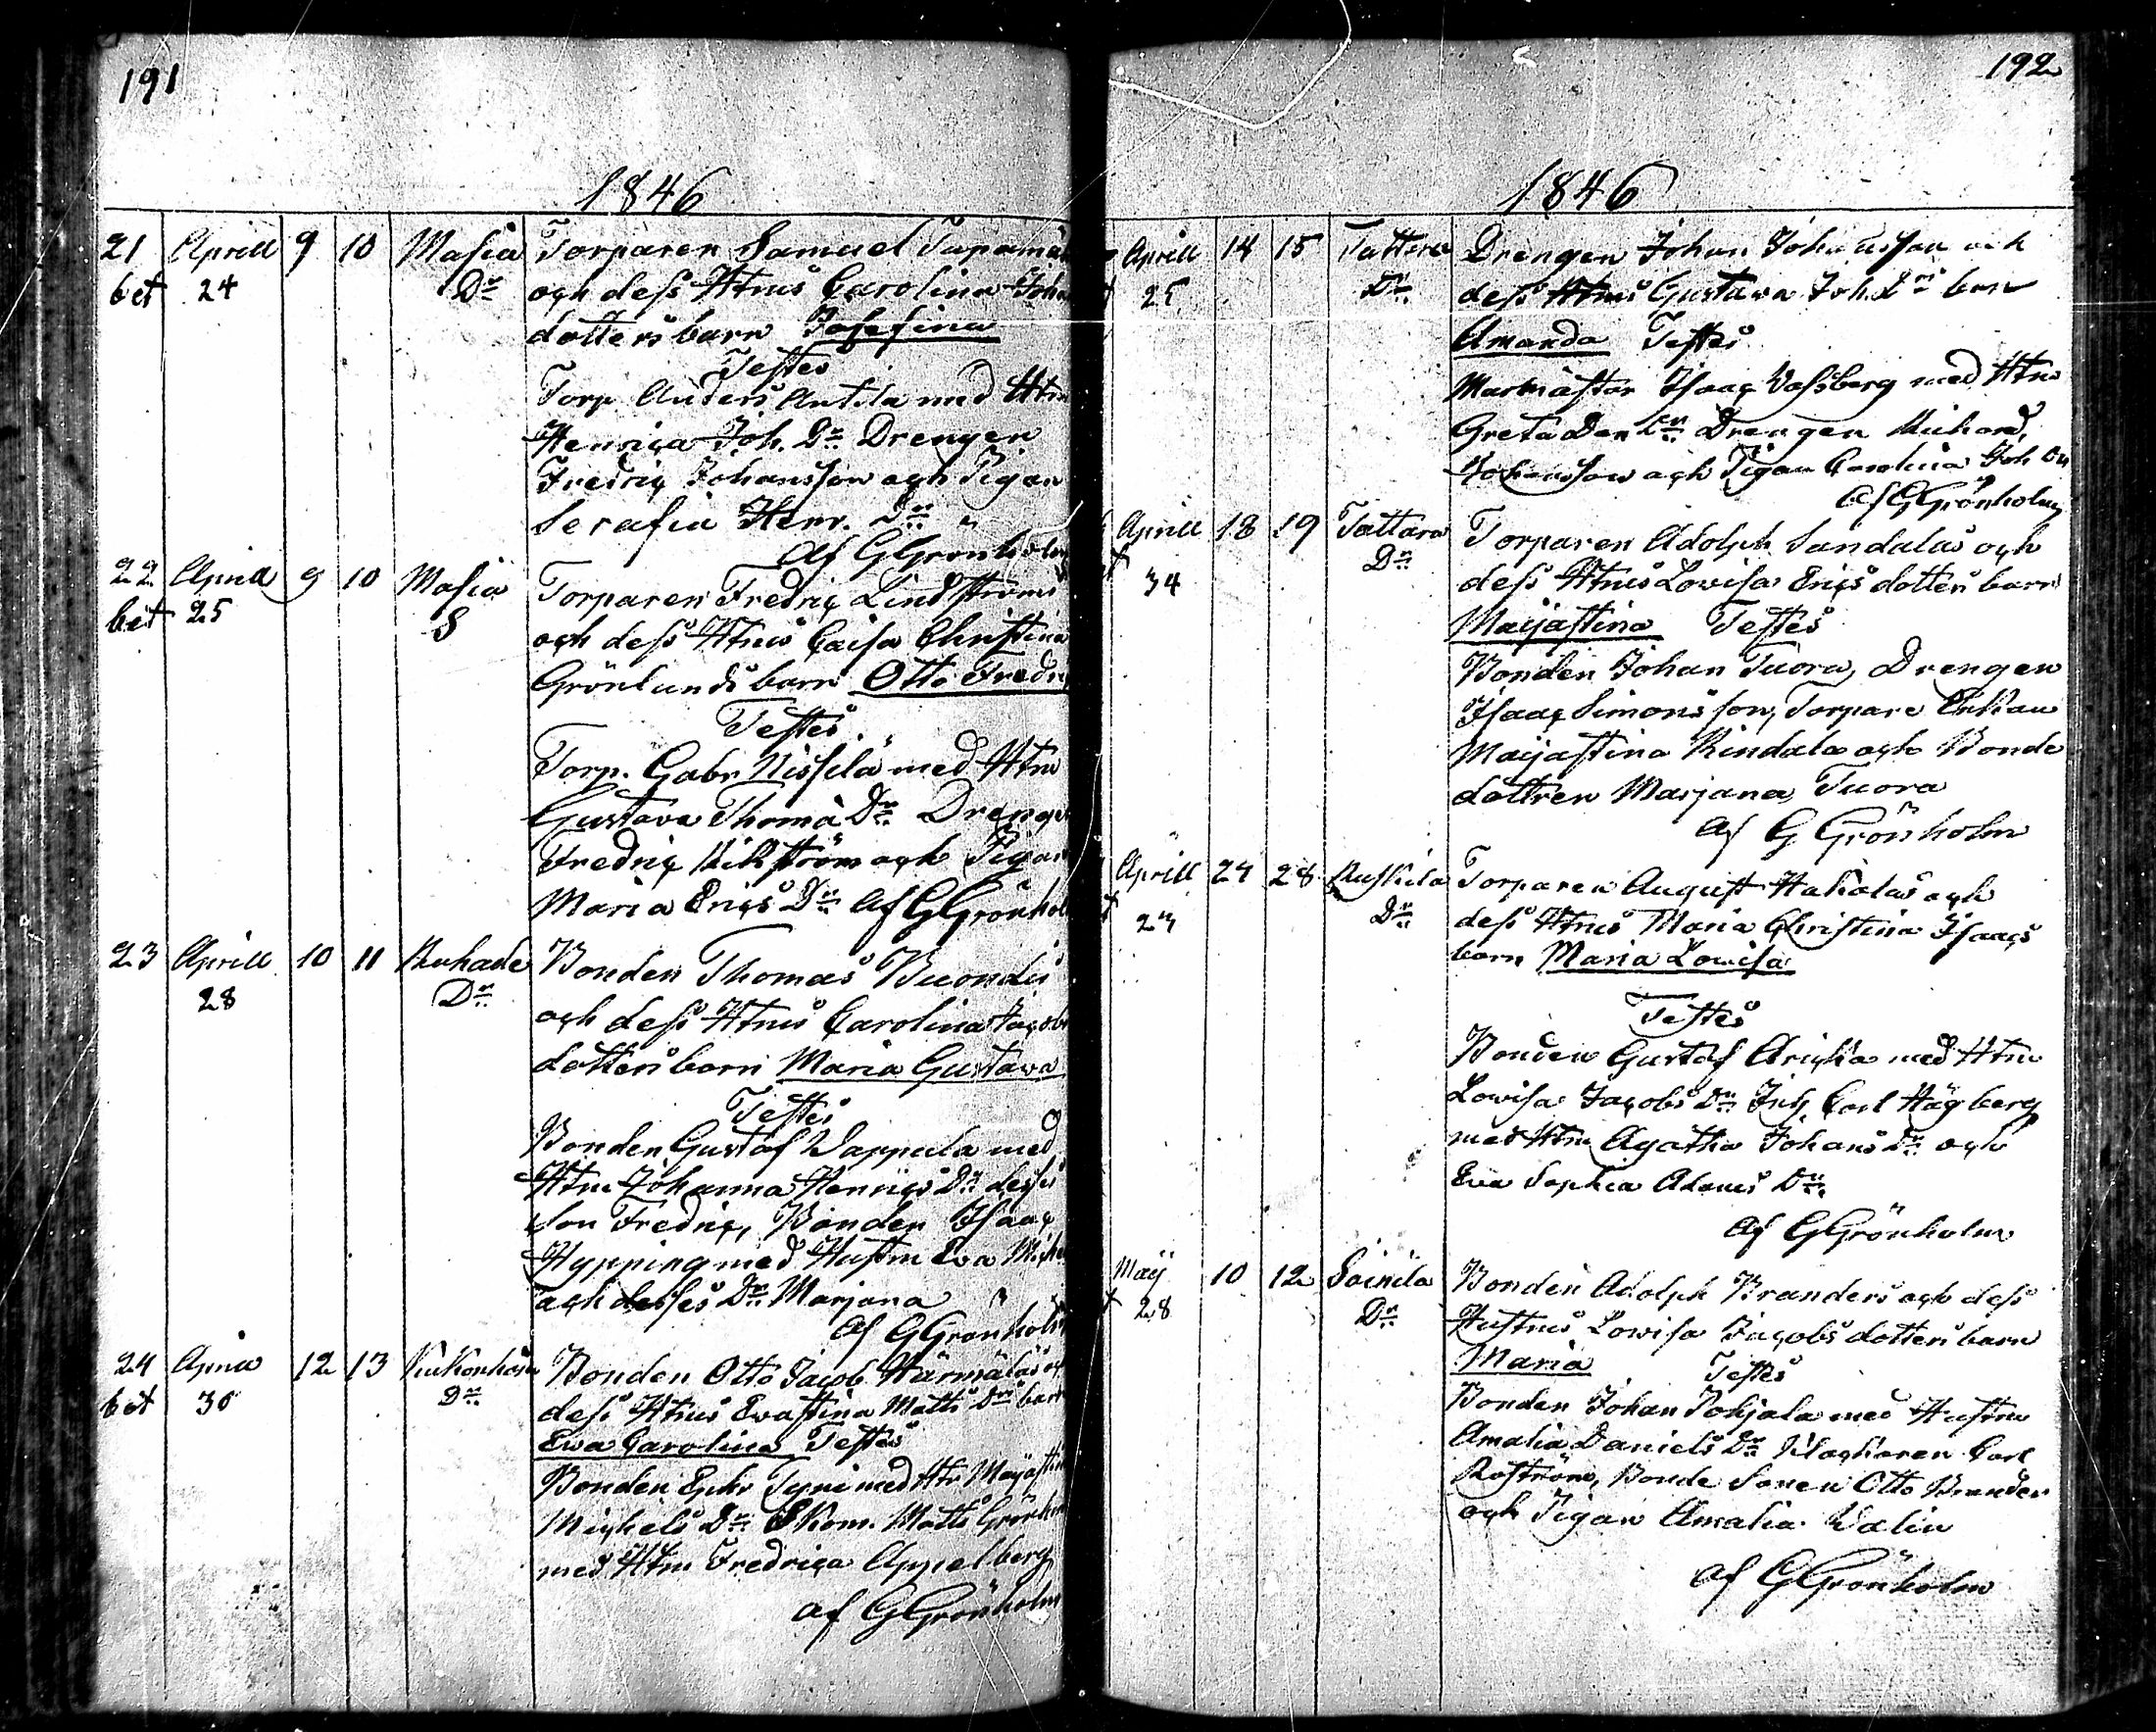 191
1846
21 Aprill 9 10 Masia Torparen Samuel
bet 24 Dr och dess Htrus Carolina Joh
dotters barn Josefina
Testes
Torp Anders Antila med Htru
Henrica Joh. Dr Drengen
Fredric Johansson och Pigan
Serafia Henr. Dr
Af G Grönholm
22 Aprill 9 10 Masia Torparen Fredric Lindströms
bet 25 S och dess Htrus Caisa Christina
Grönlunds barn Otto Fredric
Testes
Torp. Gabr Nissilä med Htru
Gustava Thomä Dr Drengen
Fredric Wikström och Pigan
Maria Erics Dr Af G Grönholm
23 Aprill 10 11 Bonden Thomas
28 Dr och dess Htrus Carolina Jacobs
dotters barn Maria Gustava
Testes
Bonden Gustaf Wappula med
Htru Johanna Henrics Dr dess
Son Fredric, Bonden Isaac
Hypping med Hustru Eva Mich
och desses Dr Marjana
Af G Grönholm
24 Aprill 12 13 Bonden Otto Jacob Härmäläs och
bet 30 Dr dess Htrus Evastina Matts Dr barn
Ewa Carolina Testes
Bonden Ephr med Htr Maijastina
Michels Dr Skom. Matts
med Htru Fredrica Appelberg
af G Grönholm
192
1846
Aprill 14 15 Tattara Drengen Johan Johansson och
25 Dr dess Htrus Gustava Joh. Drs barn
Amanda Testes
Isaac Vassberg med Htru
Greta Drengen Michael
Johansson och Pigan Carolina Joh Dr
Af G Grönholm
Aprill 18 19 Tattara Torparen Adolph Sandalas och
34 Dr dess Htrus Lowisa Erics dotters barn
Maijastina Testes
Bonden Johan Tuora, Drengen
Isaac Simonsson, Torpare Enkan
Maijastina Rindala och Bonde
dottren Marjana Tuora
Af G Grönholm
Aprill 24 28 Ruskila Torparen August Hakalas och
Dr dess Htrus Maria Christina Isaacs
barn Maria Lowisa
Testes
Bonden Gustaf med Htru
Lowisa Jacobs Dr Inh. Carl Högberg
med Htru Agatha Johans Dr och
Eva Sophia Adams Dr
Af G Grönholm
Maij 10 12 Soinila Bonden Adolph Branders och dess
28 Dr Hustrus Lowisa Jacobs dotters barn
Maria Testes
Bonden Johan Pohjala med Hustru
Amalia Daniels Dr Klockaren Carl
Roström, Bonde Sonen Otto Brander
och Pigan Amalia Walin
af G Grönholm